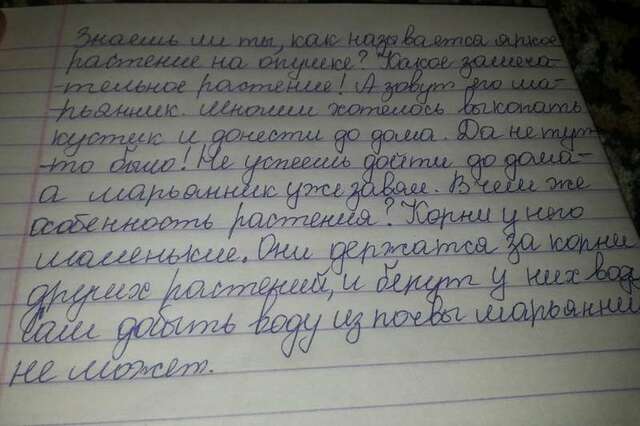 Знаешь ли ты, как называется яркое
растение на опушке? Какое замеча-
-тельное растение! А зовут его ма-
-рьянник. Многим хотелось выкопать
кустик и донести до дома. Да не тут
-то было! Не успеешь дойти до дома-
а марьянник уже завял. В чем же
особенность растения? Корни у него
маленькие. Они держатся за корни
других растений, и берут у них вод
Сам добыть воду из почвы марьянни
не может.